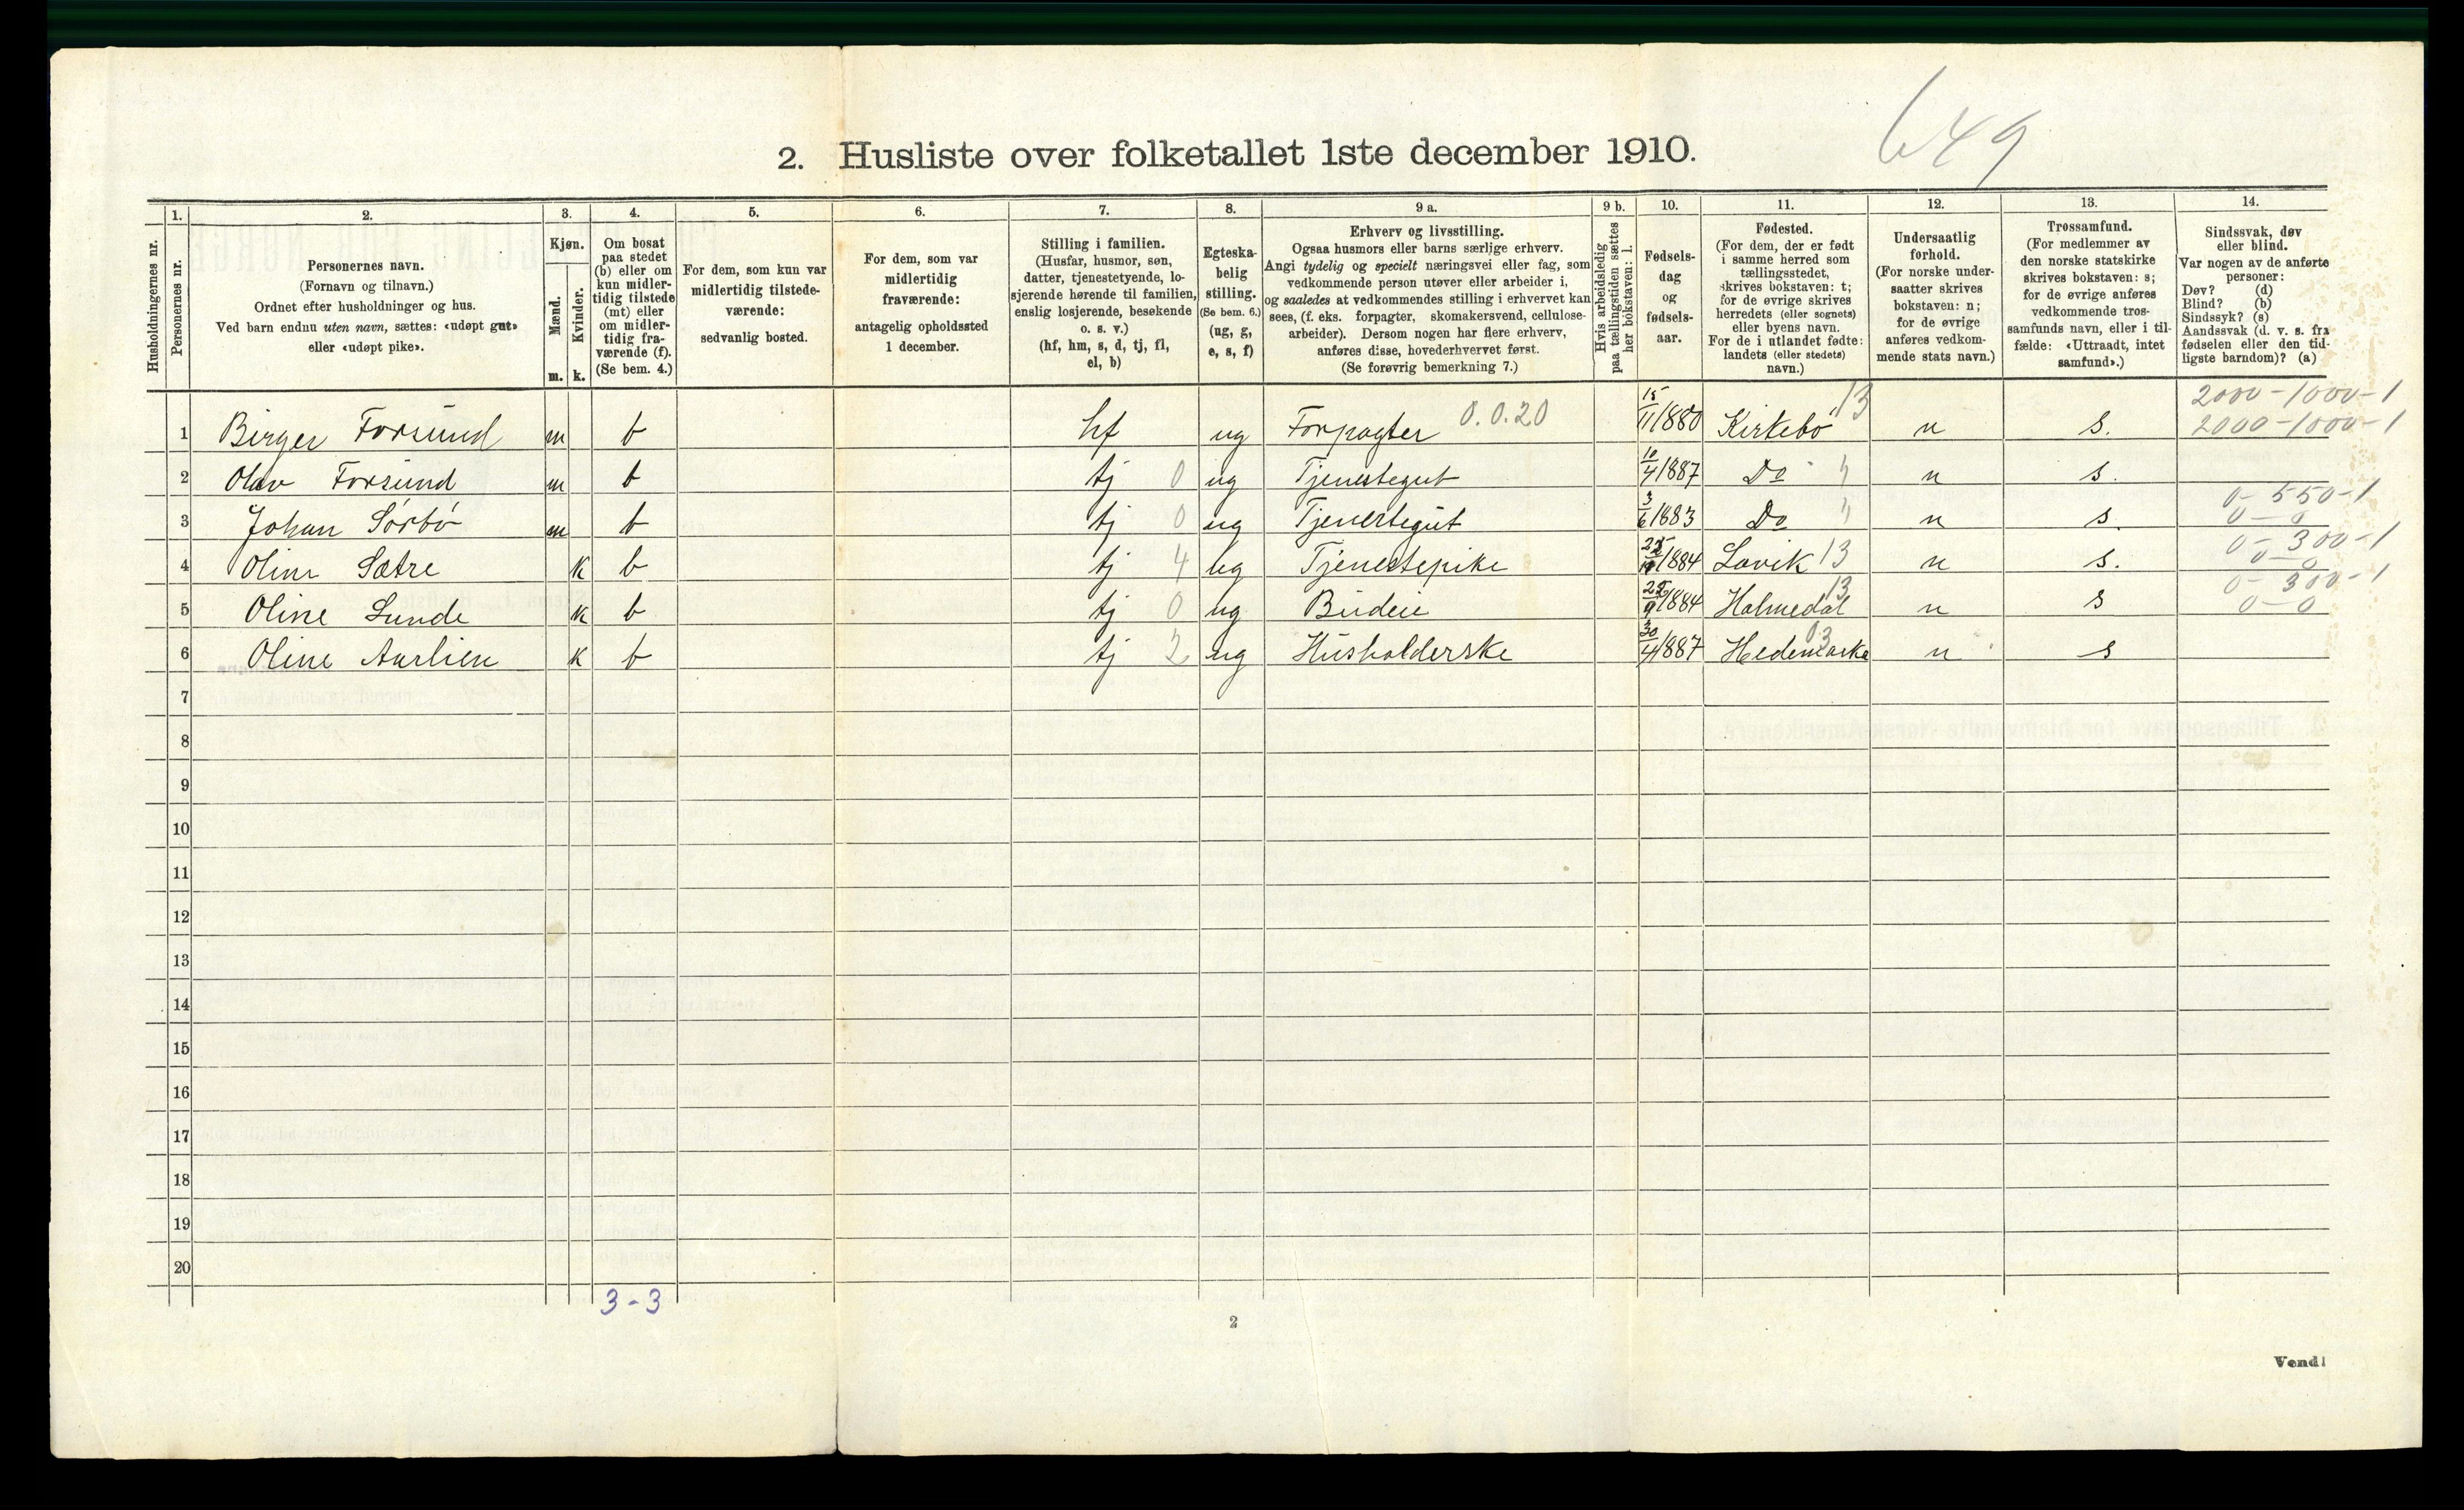 649
2. Husliste over folketallet 1ste december 1910.
Husholdningernes nr.
1.
Personernes nr.
2.
Personernes navn.
(Fornavn og tilnavn.)
Ordnet efter husholdninger og hus.
Ved barn endnu uten navn, sættes: «udøpt gut»
eller «udøpt pike».
3.
Kjøn.
Mænd.
m.
Kvinder.
k.
4.
Om bosat
paa stedet
(b) eller om
kun midler-
tidig tilstede
(mt) eller
om midler-
tidig fra-
værende (f).
(Se bem. 4.)
5.
For dem, som kun var
midlertidig tilstede-
værende:
sedvanlig bosted.
6.
For dem, som var
midlertidig
fraværende:
antagelig opholdssted
1 december.
7.
Stilling i familien.
(Husfar, husmor, søn,
datter, tjenestetyende, lo-
sjerende hørende til familien,
enslig losjerende, besøkende
o. s. v.)
(hf, hm, s, d, tj, fl,
el, b)
8.
Egteska-
belig
stilling.
(Se bem. 6.)
(ug, g,
e, s, f)
9 a.
Erhverv og livsstilling.
Ogsaa husmors eller barns særlige erhverv.
Angi tydelig og specielt næringsvei eller fag, som
vedkommende person utøver eller arbeider i,
og saaledes at vedkommendes stilling i erhvervet kan
sees, (f. eks. forpagter, skomakersvend, cellulose-
arbeider). Dersom nogen har flere erhverv,
anføres disse, hovederhvervet først.
(Se forøvrig bemerkning 7.)
9 b.
Hvis arbeidsledig
paa tællingstiden sættes
her bokstaven: l.
10.
Fødsels-
dag
og
fødsels-
aar.
11.
Fødested.
(For dem, der er født
i samme herred som
tællingsstedet,
skrives bokstaven: t;
for de øvrige skrives
herredets (eller sognets)
eller byens navn.
For de i utlandet fødte:
landets (eller stedets)
navn.)
12.
Undersaatlig
forhold.
(For norske under-
saatter skrives
bokstaven: n;
for de øvrige
anføres vedkom-
mende stats navn.)
13.
Trossamfund.
(For medlemmer av
den norske statskirke
skrives bokstaven: s;
for de øvrige anføres
vedkommende tros-
samfunds navn, eller i til-
fælde: «Uttraadt, intet
samfund».)
14.
Sindssvak, døv
eller blind.
Var nogen av de anførte
personer:
Døv? (d)
Blind? (b)
Sindssyk? (s)
Aandssvak (d. v. s. fra
fødselen eller den tid-
ligste barndom)? (a)
2000-1000-1
1 Birger Forsund m b hf ug Forpagter 0.0.20 15/11 1880 Kirkebø 13 n s. 2000-1000-1
2 Olav Forsund m b tj 0 ug Tjenestegut 10/4 1887 Do n s.
0-550-1
3 Johan Sørbø m b tj 0 ug Tjenestegut 3/6 1883 Do n s. 0-0
0-300-1
4 Oline Sætre k b tj 4 ug Tjenestepike 1884 Lavik 13 n s. 0-0
0-300-1
5 Oline Lunde k b tj 0 ug Budeie 1884 Holmedal 13 n s 0-0
6 Oline Aurlien k b tj 2 ug Husholderske 30/4 1887 Hedemarke 03 n s
7
8
9
10
11
12
13
14
15
16
17
18
19
20
3-3
2
Vend!